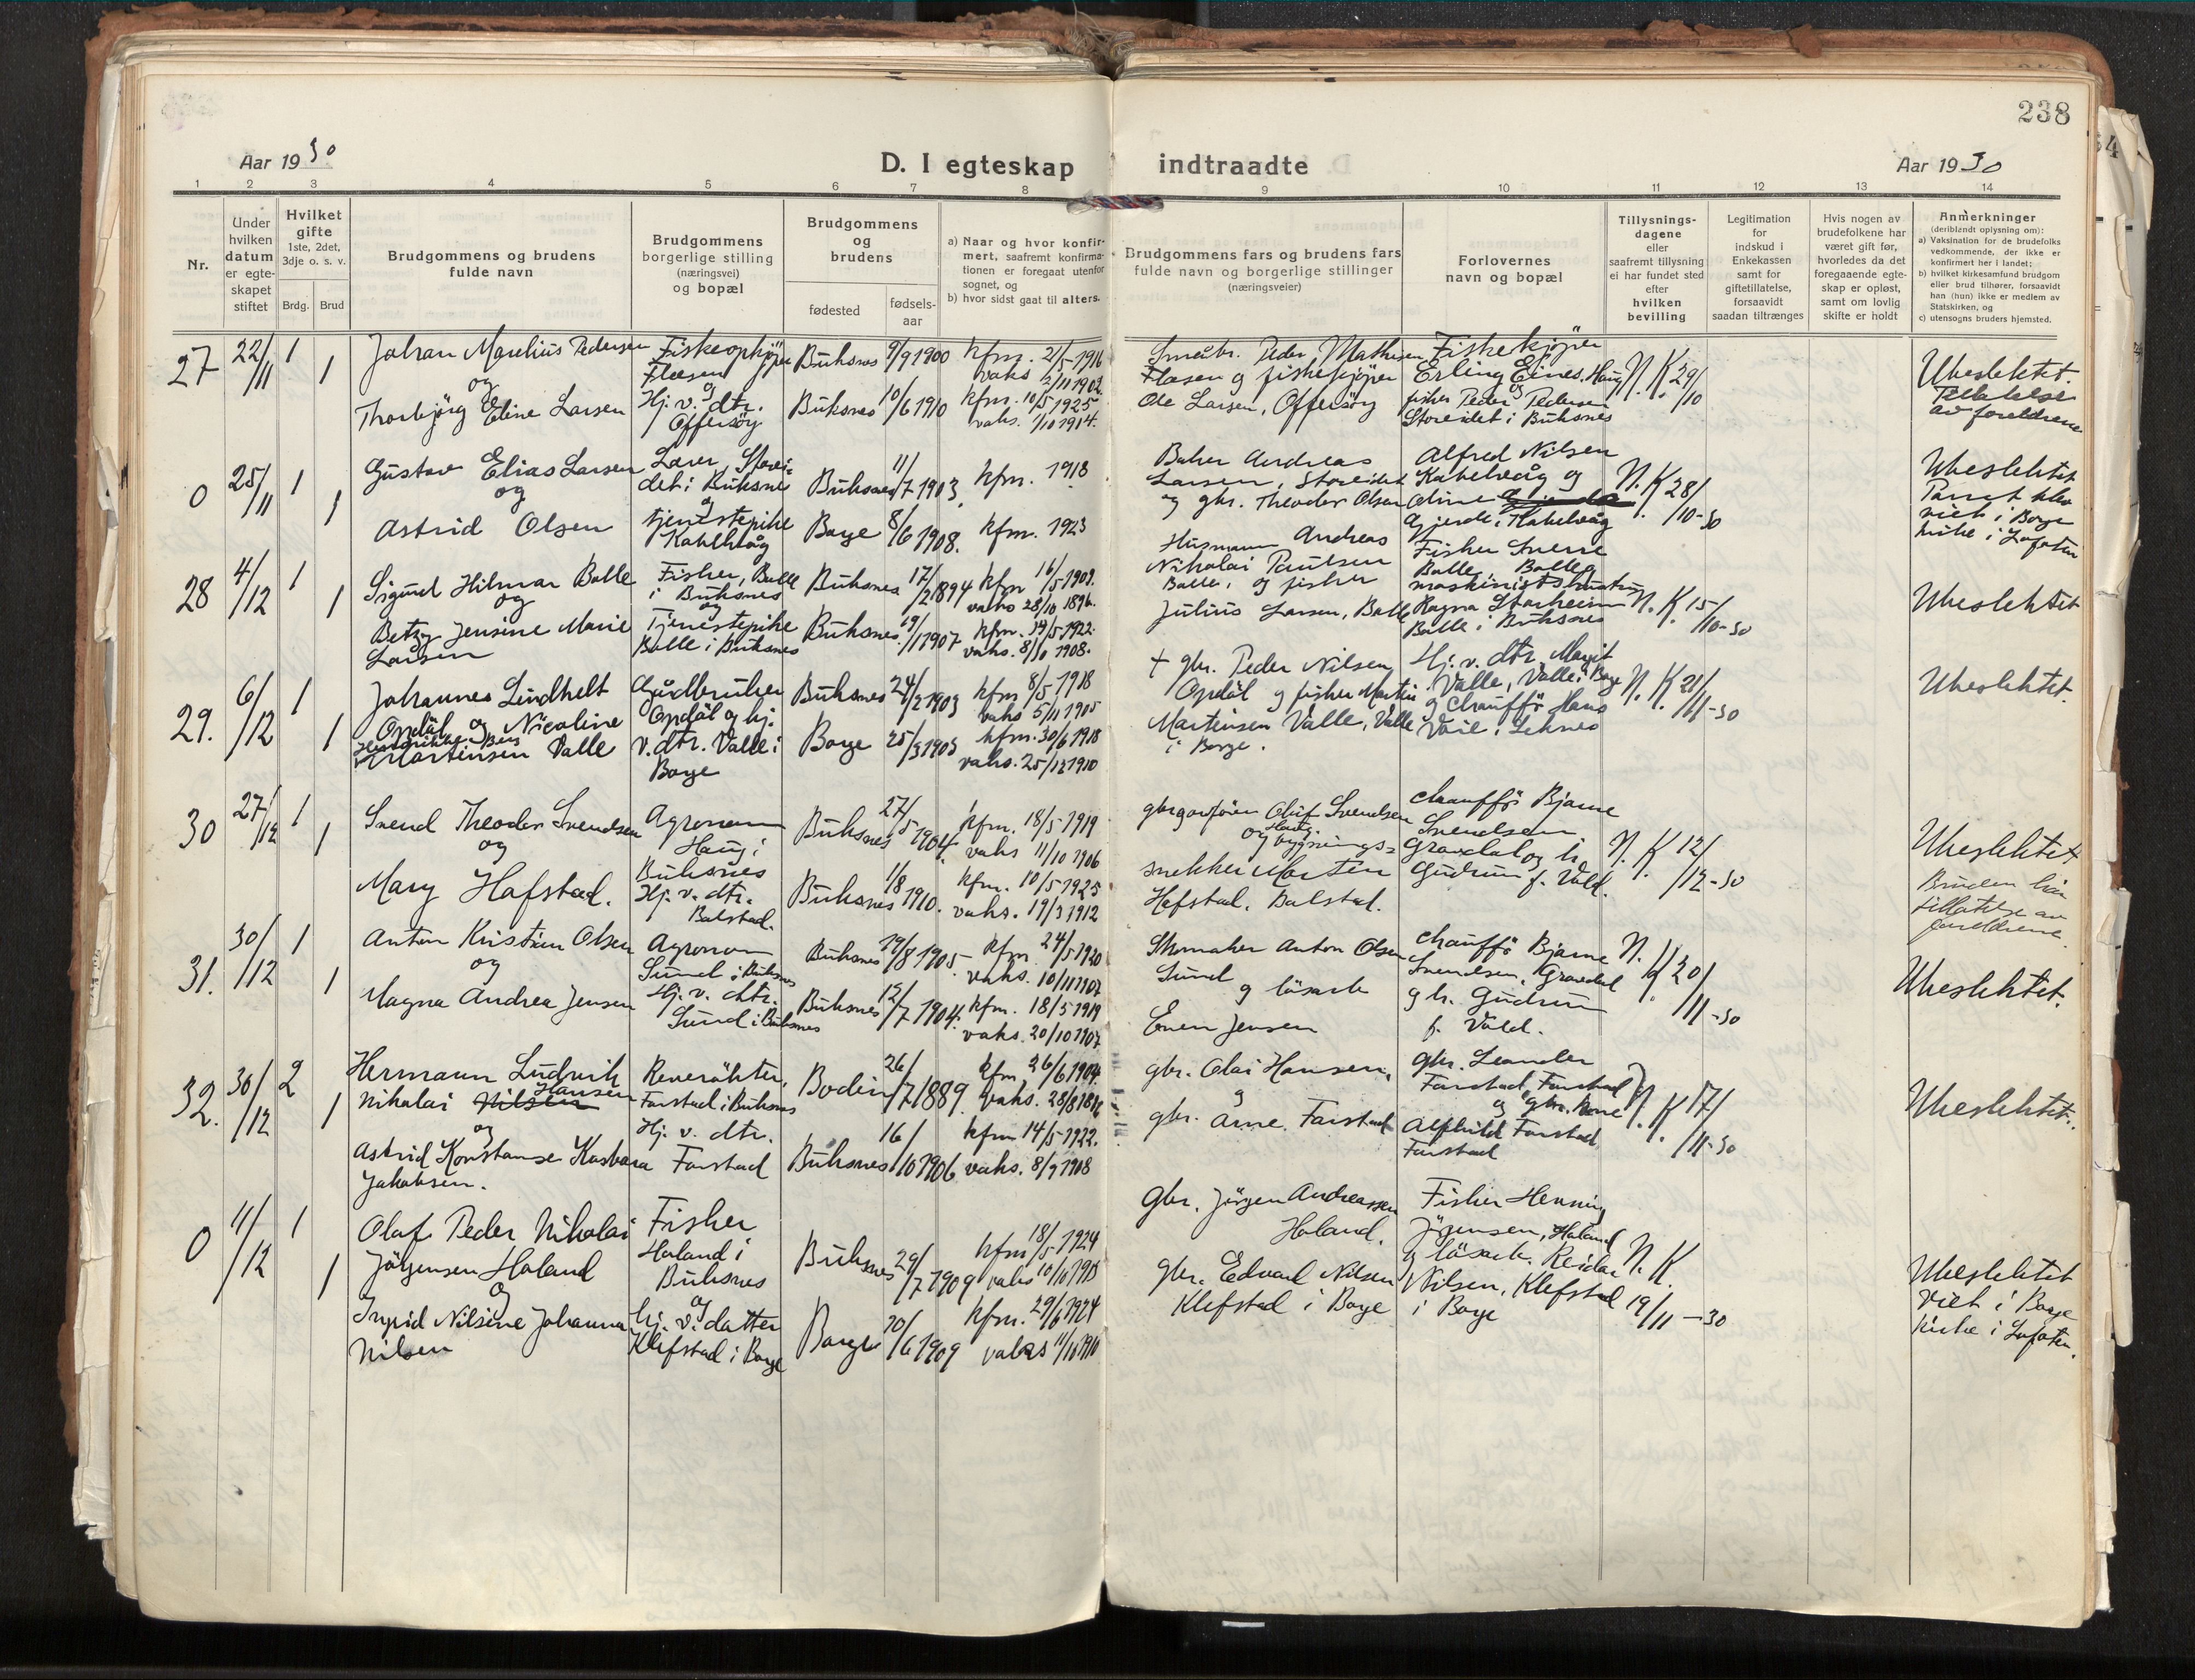 238
Aar 1930
D. I egteskap indtraadte
Aar 1930
1 2 3 4 5 6 7 8 9 10 11 12 13 14
Nr.
Under
hvilken
datum
er egte-
skapet
stiftet
Hvilket
gifte
1ste, 2det,
3dje o. s. v.
Brdg. Brud
Brudgommens og brudens
fulde navn
Brudgommens
borgerlige stilling
(næringsvei)
og bopæl
Brudgommens
og
brudens
fødested
fødsels-
aar
a) Naar og hvor konfir-
mert, saafremt konfirma-
tionen er foregaat utenfor
sognet, og
b) hvor sidst gaat til alters.
Brudgommens fars og brudens fars
fulde navn og borgerlige stillinger
(næringsveier)
Forlovernes
navn og bopæl
Tillysnings-
dagene
eller
saafremt tillysning
ei har fundet sted
efter
hvilken
bevilling
Legitimation
for
indskud i
Enkekassen
samt for
giftetillatelse,
forsaavidt
saadan tiltrænges
Hvis nogen av
brudefolkene har
været gift før,
hvorledes da det
foregaaende egte-
skap er opløst,
samt om lovlig
skifte er holdt
Anmerkninger
(deriblandt oplysning om):
a) Vaksination for de brudefolks
vedkommende, der ikke er
konfirmert her i landet;
b) hvilket kirkesamfund brudgom
eller brud tilhører, forsaavidt
han (hun) ikke er medlem av
Statskirken, og
c) utensogns bruders hjemsted.
27
22/11
1
1
Johan Marelius Pedersen
og
Thorbjörg Eline Larsen
Fiskeopkjöper
Flæsen
og
Hj. v. dtr.
Offersöy
Buksnes 9/9 1900
Buksnes 10/6 1910
kfm. 21/5-1916
vaks 2/11 1902
kfm. 10/5 1925
vaks. 1/10 1914.
Småbr. Peder Mathisen
Flæsen og fiskekjöper
Ole Larsen, Offersöy
Fiskekjöper
Erling Eines, Haug
og
fisker Peder Pedersen
Storeidet i Buksnes
N. K. 29/10
Ubeslektet.
Tillatelse
av foreldrene
0
25/11
1
1
Gustav Elias Larsen
og
Astrid Olsen
Lærer, Storei-
det i Buksnes
og
tjenestepike
Kabelvåg
Buksnes 11/7 1903
Borge 8/6 1908.
kfm. 1918
kfm. 1923
Baker Andreas
Larsen, Storeidet
og gbr. Theodor Olsen
Alfred Nilsen
Kabelvåg og
Gjerde, Kabelvåg
N. K. 28/10-30
Ubeslektet
Parret blev
viet i Borge
kirke i Lofoten
28
4/12
1
1
Sigurd Hilmar Balle
og
Betzy Jensine Marie
Larsen
Fisker, Balle
i Buksnes
og
Tjenestepike
Balle i Buksnes
Buksnes 17/2 1894
Buksnes 19/1 1907
kfm 16/5 1909.
vaks 28/10 1896.
kfm. 14/5-1922.
vaks. 8/10 1908.
Husmann Andreas
Nikolai Paulsen
Balle, og fisker
Julius Larsen, Balle
Fisker Sverre
Balle, Balle og
maskinisthustru
Ragna Storheim
Balle i Buksnes
N. K. 15/10-30
Ubeslektet
29.
6/12
1
1
Johannes Lindhelt
Opdöl og Nicoline
Martinsen Valle
Gårdbruker
Opdöl og hj.
v. dtr. Valle i
Borge
Buksnes 24/2 1903
Borge 25/3 1903
kfm 8/5-1918
vaks 5/11 1905
kfm. 30/6 1918
vaks. 25/12 1910
+ gbr. Peder Nilsen
Opdöl og fisker Martin
Martinsen Valle, Valle
i Borge.
Hj. v. dtr. Margit
Valle, Valle i Borge
og Chaufför Hans
Voie, Leknes
N. K. 21/11-30
Ubeslektet.
30
27/12
1
1
Svend Theodor Svendsen
og
Mary Hafstad.
Agronom
Haug i
Buksnes
Hj. v. dtr.
Balstad.
Buksnes 27/5 1904.
Buksnes 1/8 1910.
kfm. 18/5 1919
vaks 11/10 1906
kfm. 10/5 1925
vaks. 19/3 1912
Oluf Svendsen
Haug.
og bygnings-
snekker Morten
Hafstad. Balstad.
Chaufför Bjarne
Svendsen
Gravdal og h.
Gudrun f. Vold.
N. K. 12/12-30
Ubeslektet
Bruden har
tillatelse av
foreldrene.
31.
30/12
1
1
Anton Kristian Olsen
og
Magna Andrea Jensen
Agronom
Sund i Buksnes
Hj. v. dtr.
Sund i Buksnes
Buksnes 19/8 1905
Buksnes 12/7 1904.
kfm. 24/5 1920
vaks. 10/11 1907
kfm. 18/5 1919
vaks. 20/10 1907
Skomaker Anton Olsen
Sund
og lösarb
Even Jensen
Chaufför Bjarne
Svendsen, Gravdal
og h. Gudrun
f. Vold.
N. K. 20/11-30
Ubeslektet.
32.
30/12
2
1
Hermann Ludvik
Nikolai Nilsen Hansen
og
Astrid Konstanse Kasbara
Jakobsen.
Reverökter,
Farstad i Buksnes
Hj. v. dtr.
Farstad
Bodin 26/7 1889
Buksnes 16/10 1906
kfm 26/6 1904.
vaks. 28/8 1890
kfm 14/5-1922.
vaks. 8/9 1908
gbr. Olai Hansen,
og
gbr. Arne Farstad
gbr. Leander
Farstad, Farstad
og gbr. kone
Alfhild Farstad,
Farstad
N. K. 17/11-30
Ubeslektet.
0
11/12
1
1
Olaf Peder Nikolai
Jörgensen Holand
og
Ingrid Nilsine Johanna
Nilsen
Fisker
Holand i
Buksnes
og
hj. v. datter
Klefstad i Borge
Buksnes 29/7 1909
Borge 20/6 1909
kfm 18/5 1924
vaks 10/10 1915
kfm. 29/6 1924
vaks 11/10 1910
Gbr. Jörgen Andreassen
Holand.
gbr. Edvard Nilsen
Klefstad i Borge
Fisker Henning
Jörgensen, Holand
og lösarb. Reidar
Nilsen, Klefstad
i Borge
N. K.
19/11-30
Ubeslektet
viet i Borge
kirke i Lofoten.